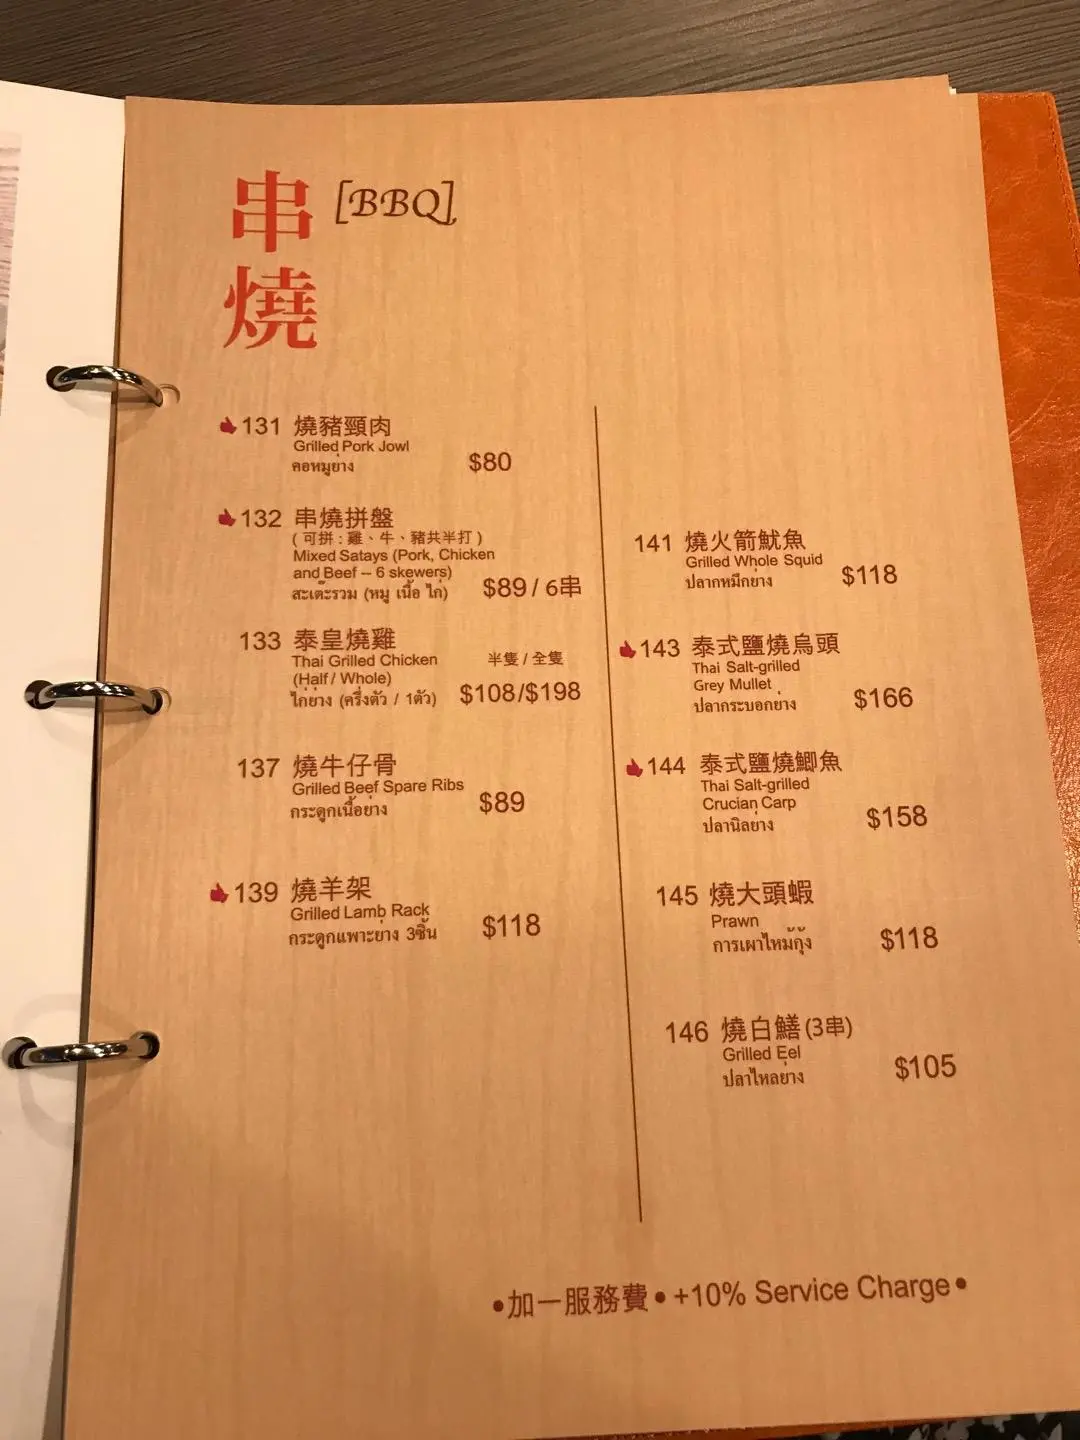 串燒 [BBQ]
131 燒豬頸肉
Grilled Pork Jowl
คอหมูย่าง $80
132 串燒拼盤
( 可拼 : 雞、牛、豬共半打 )
Mixed Satays (Pork, Chicken
and Beef – 6 skewers)
สะเต๊ะรวม (หมู เนื้อ ไก่) $89 / 6串
133 泰皇燒雞
Thai Grilled Chicken 半隻 / 全隻
(Half / Whole)
ไก่ย่าง (ครึ่งตัว / 1ตัว) $108/$198
137 燒牛仔骨
Grilled Beef Spare Ribs
กระดูกเนื้อย่าง $89
139 燒羊架
Grilled Lamb Rack
กระดูกแพาะย่าง 3ชิ้น $118
141 燒火箭魷魚
Grilled Whole Squid
ปลากหมึกย่าง $118
143 泰式鹽燒烏頭
Thai Salt-grilled
Grey Mullet
ปลากระบอกย่าง $166
144 泰式鹽燒鯽魚
Thai Salt-grilled
Crucian Carp
ปลานิลย่าง $158
145 燒大頭蝦
Prawn
การเผาไหม้กุ้ง $118
146 燒白鱔(3串)
Grilled Eel
ปลาไหลย่าง $105
•加一服務費• +10% Service Charge•